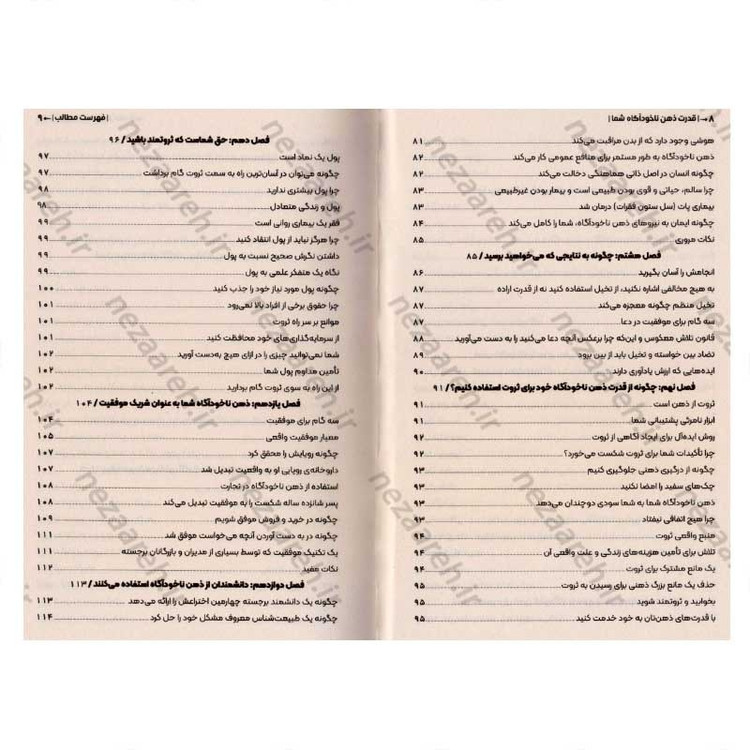 ۸ → | قدرت ذهن ناخودآگاه شما |
هوشی وجود دارد که از بدن مراقبت می‌کند ۸۱
ذهن ناخودآگاه به طور مستمر برای منافع عمومی کار می‌کند ۸۲
چگونه انسان در اصل ذاتی هماهنگی دخالت می‌کند ۸۲
چرا سالم، حیاتی و قوی بودن طبیعی است و بیمار بودن غیرطبیعی ۸۳
بیماری پات (سل ستون فقرات) درمان شد ۸۳
چگونه ایمان به نیروهای ذهن ناخودآگاه، شما را کامل می‌کند ۸۴
نکات مروری ۸۵
فصل هشتم: چگونه به نتایجی که می‌خواهید برسید / ۸۵
انجامش را آسان بگیرید ۸۶
به هیچ مخالفی اشاره نکنید، از تخیل استفاده کنید نه از قدرت اراده ۸۷
تخیل منظم چگونه معجزه می‌کند ۸۷
سه گام برای موفقیت در دعا ۸۷
قانون تلاش معکوس و این‌که چرا برعکس آنچه دعا می‌کنید را به دست می‌آورید ۸۸
تضاد بین خواسته و تخیل باید از بین برود ۸۹
ایده‌هایی که ارزش یادآوری دارند ۹۰
فصل نهم: چگونه از قدرت ذهن ناخودآگاه خود برای ثروت استفاده کنیم؟ / ۹۱
ثروت از ذهن است ۹۱
ابزار نامرئی پشتیبانی شما ۹۱
روش ایده‌آل برای ایجاد آگاهی از ثروت ۹۲
چرا تأکیدات شما برای ثروت شکست می‌خورد؟ ۹۲
چگونه از درگیری ذهنی جلوگیری کنیم ۹۳
چک‌های سفید را امضا نکنید ۹۳
ذهن ناخودآگاه شما به شما سودی دوچندان می‌دهد ۹۳
چرا هیچ اتفاقی نیفتاد ۹۳
منبع واقعی ثروت ۹۴
تلاش برای تأمین هزینه‌های زندگی و علت واقعی آن ۹۴
یک مانع مشترک برای ثروت ۹۴
حذف یک مانع بزرگ ذهنی برای رسیدن به ثروت ۹۵
بخوابید و ثروتمند شوید ۹۵
با قدرت‌های ذهن‌تان به خود خدمت کنید ۹۵
| فهرست مطالب | ← ۹
فصل دهم: حق شماست که ثروتمند باشید / ۹۶
پول یک نماد است ۹۷
چگونه می‌توان در آسان‌ترین راه به سمت ثروت گام برداشت ۹۷
چرا پول بیشتری ندارید ۹۸
پول و زندگی متعادل ۹۸
فقر یک بیماری روانی است ۹۹
چرا هرگز نباید از پول انتقاد کنید ۹۹
داشتن نگرش صحیح نسبت به پول ۹۹
نگاه یک متفکر علمی به پول ۹۹
چگونه پول مورد نیاز خود را جذب کنید ۱۰۰
چرا حقوق برخی از افراد بالا نمی‌رود ۱۰۱
موانع بر سر راه ثروت ۱۰۱
از سرمایه‌گذاری‌های خود محافظت کنید ۱۰۱
شما نمی‌توانید چیزی را در ازای هیچ به‌دست آورید ۱۰۲
تأمین مداوم پول شما ۱۰۲
از این راه به سوی ثروت گام بردارید ۱۰۲
فصل یازدهم: ذهن ناخودآگاه شما به عنوان شریک موفقیت / ۱۰۴
سه گام برای موفقیت ۱۰۴
معیار موفقیت واقعی ۱۰۵
چگونه رویایش را محقق کرد ۱۰۷
داروخانه‌ی رویایی او به واقعیت تبدیل شد ۱۰۷
استفاده از ذهن ناخودآگاه در تجارت ۱۰۸
پسر شانزده ساله شکست را به موفقیت تبدیل می‌کند ۱۰۸
چگونه در خرید و فروش موفق شویم ۱۰۹
چگونه در به دست آوردن آنچه می‌خواست موفق شد ۱۱۱
یک تکنیک موفقیت که توسط بسیاری از مدیران و بازرگانان برجسته ۱۱۱
نکات مفید ۱۱۲
فصل دوازدهم: دانشمندان از ذهن ناخودآگاه استفاده می‌کنند / ۱۱۳
چگونه یک دانشمند برجسته چهارمین اختراعش را ارائه می‌دهد ۱۱۳
چگونه یک طبیعت‌شناس معروف مشکل خود را حل کرد ۱۱۴
nezaareh.ir